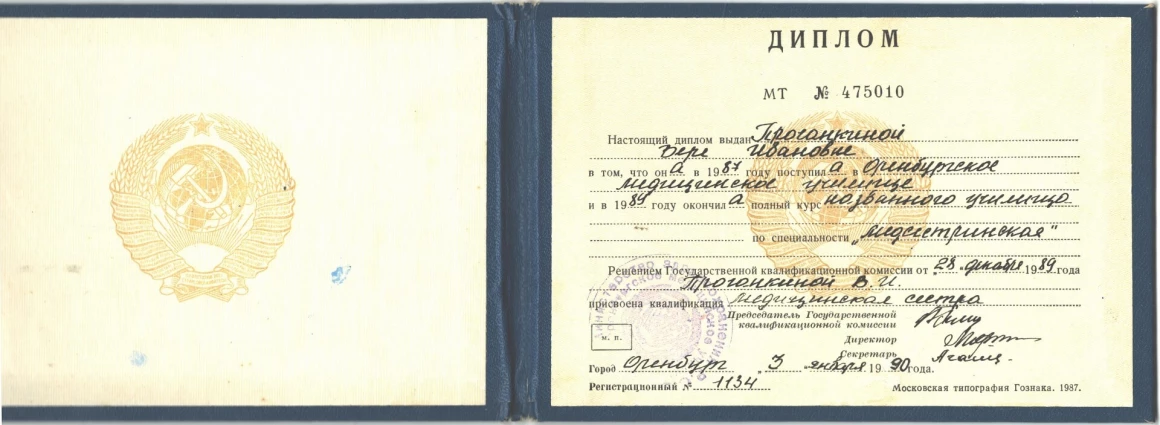 ДИПЛОМ
МТ № 475010
Настоящий диплом выдан Проганкиной
Вере Ивановне
в том, что она в 1987 году поступила в Оренбургское
медицинское училище
и в 1989 году окончила полный курс названного училища
по специальности „Медсестринская"
Решением Государственной квалификационной комиссии от 28 декабря 1989 года
Проганкиной В.И.
присвоена квалификация медицинская сестра
Председатель Государственной
квалификационной комиссии
м. п.
Директор
Секретарь
Город Оренбург „ 3 января 1990 года.
Регистрационный № 1134
Московская типография Гознака. 1987.